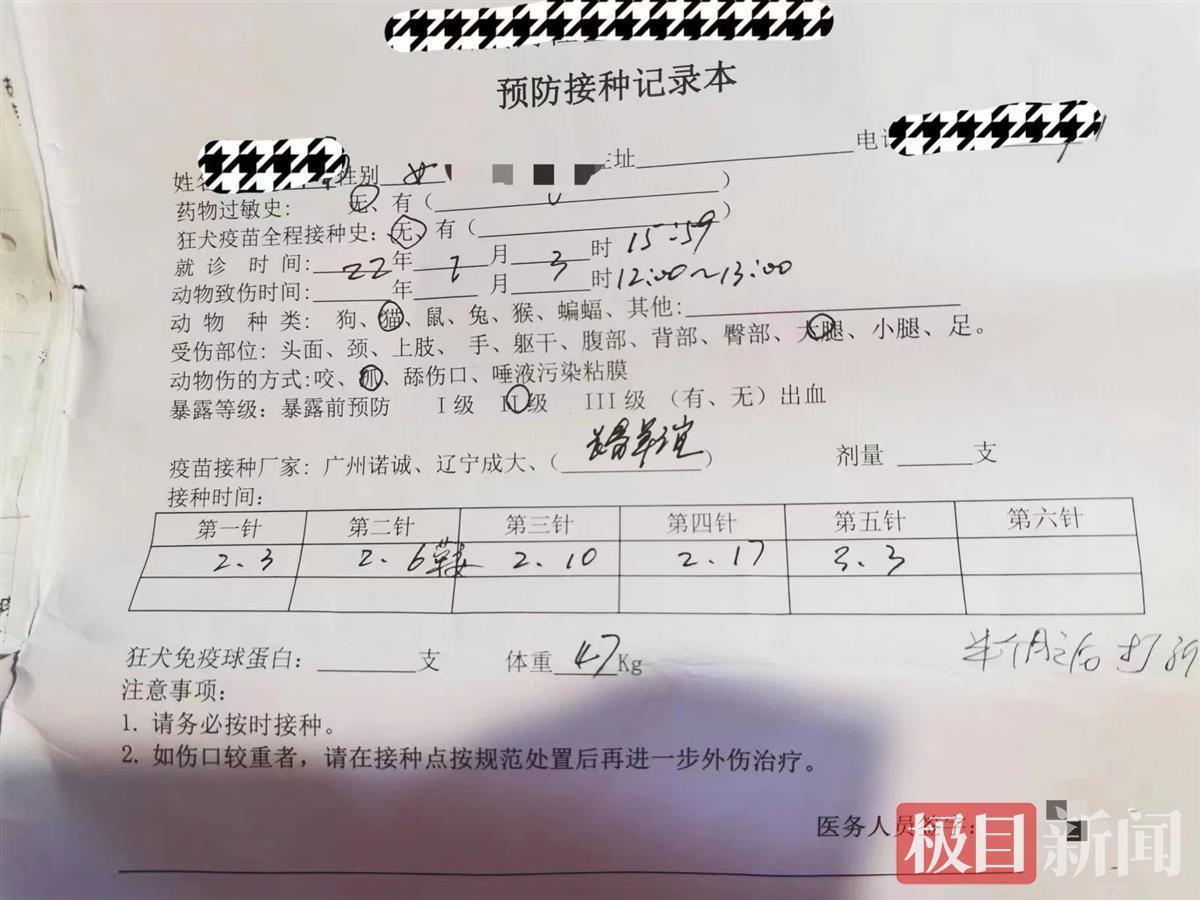 预防接种记录本
姓名 性别 女 住址 电话
药物过敏史： 无、有（ ）
狂犬疫苗全程接种史：无、有（ ）
就诊时间： 22 年 2 月 3 时 15:59
动物致伤时间： 年 月 时 12:00~13:00
动物种类： 狗、猫、鼠、兔、猴、蝙蝠、其他：
受伤部位：头面、颈、上肢、手、躯干、腹部、背部、臀部、大腿、小腿、足。
动物伤的方式：咬、抓、舔伤口、唾液污染粘膜
暴露等级：暴露前预防 I级 II级 III级 （有、无）出血
疫苗接种厂家：广州诺诚、辽宁成大、（ ） 剂量 支
接种时间：
第一针 第二针 第三针 第四针 第五针 第六针
2.3 2.6 2.10 2.17 3.3
狂犬免疫球蛋白： 支 体重 47 Kg
半个月之后打
注意事项：
1. 请务必按时接种。
2. 如伤口较重者，请在接种点按规范处置后再进一步外伤治疗。
医务人员签字：
极目新闻